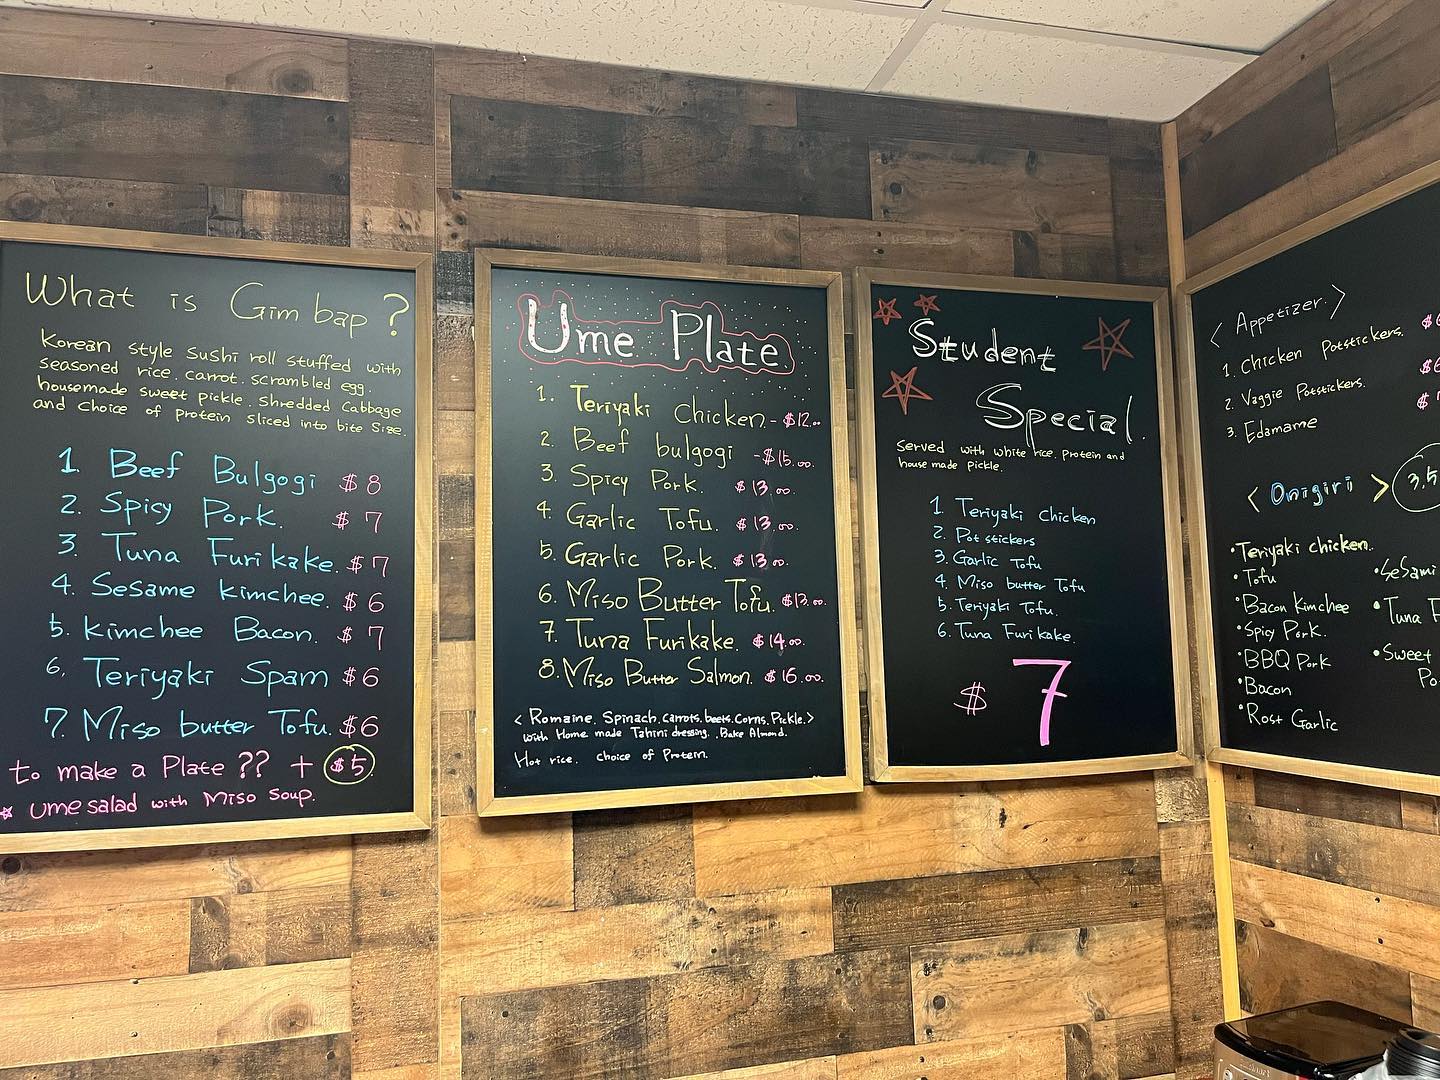 What is Gimbap?
Korean style sushi roll stuffed with
seasoned rice. carrot. scrambled egg.
housemade sweet pickle. shredded cabbage
and choice of protein sliced into bite size.
1. Beef Bulgogi $8
2. Spicy Pork. $7
3. Tuna Furikake. $7
4. Sesame kimchee. $6
5. Kimchee Bacon. $7
6. Teriyaki Spam $6
7. Miso butter Tofu. $6
to make a Plate ?? + $5
ume salad with Miso Soup.
Ume Plate
1. Teriyaki chicken - $12.00
2. Beef bulgogi - $15.00.
3. Spicy Pork. $13.00.
4. Garlic Tofu. $13.00.
5. Garlic Pork. $13.00.
6. Miso Butter Tofu. $13.00.
7. Tuna Furikake. $14.00.
8. Miso Butter Salmon. $16.00.
< Romaine. Spinach. carrots. beets. Corns. Pickle. >
with Home made Tahini dressing. Bake Almond.
Hot rice. choice of Protein.
Student
Special.
Served with white rice. protein and
house made pickle.
1. Teriyaki chicken
2. Pot stickers
3. Garlic Tofu
4. Miso butter Tofu
5. Teriyaki Tofu.
6. Tuna Furikake.
$7
< Appetizer. >
1. Chicken Potstickers.
2. Vaggie Potstickers.
3. Edamame
< Onigiri > 3.5
•Teriyaki chicken.
•Tofu
•Bacon Kimchee
•Spicy Pork.
•BBQ Pork
•Bacon
•Rost Garlic
•Sesami
•Tuna F
•Sweet
Po